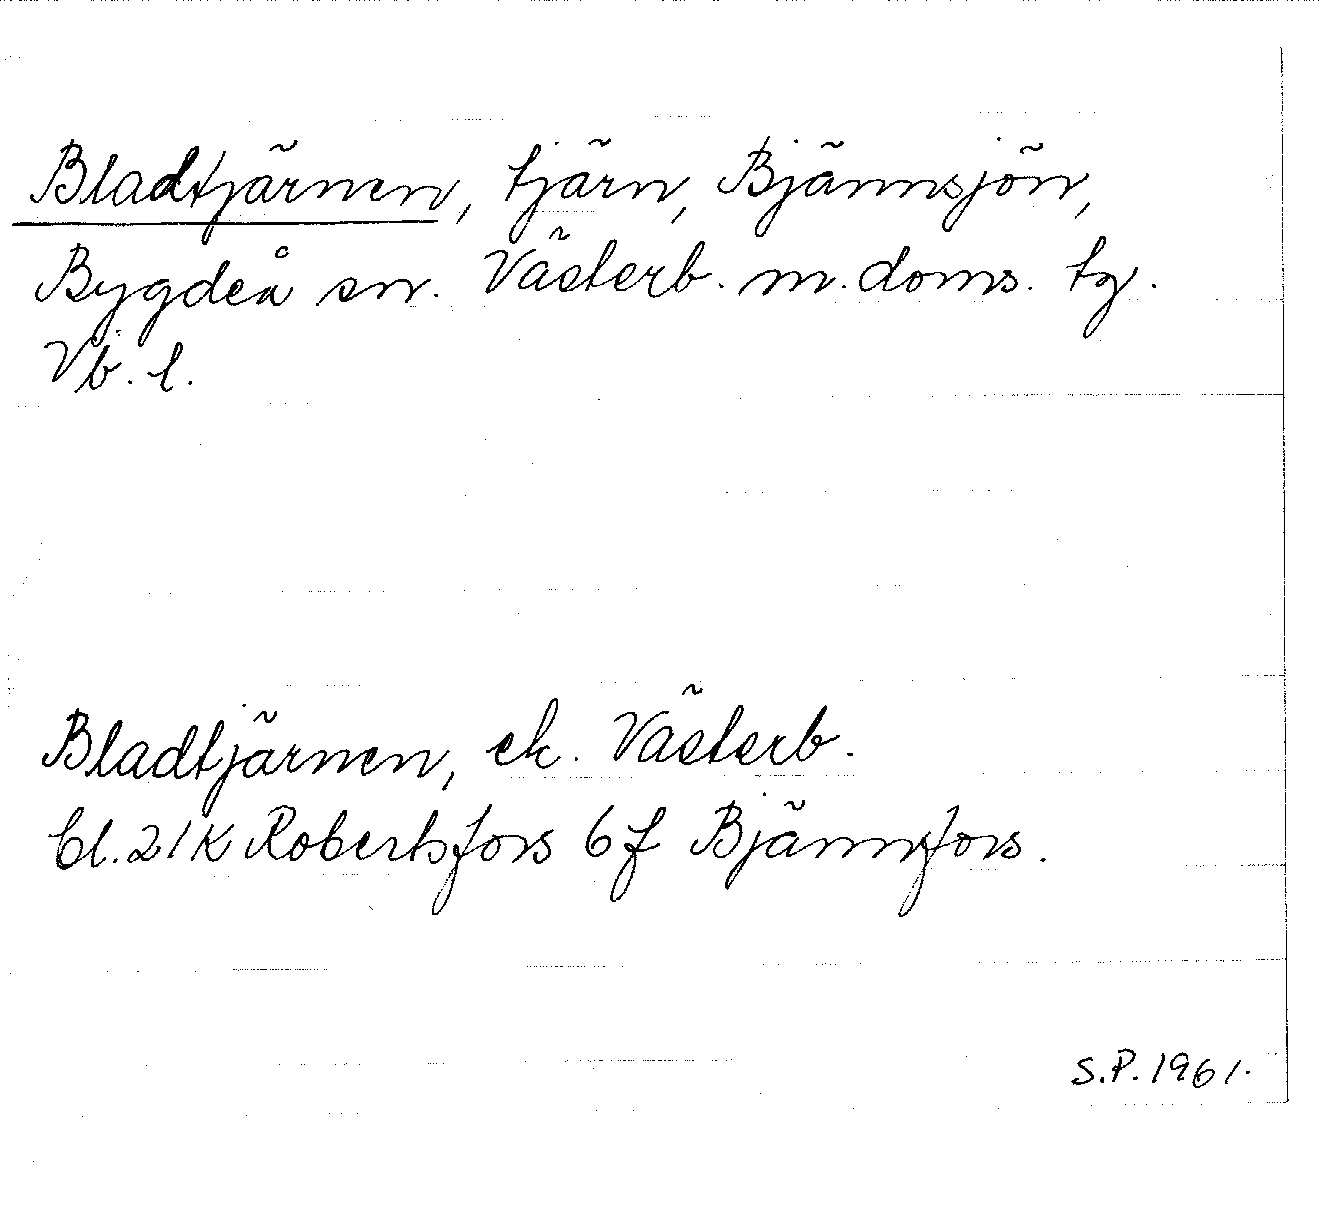 Bladtjärnen, tjärn, Bjännsjön,
Bygdeå sn. Västerb. m. doms. tg.
Vb. l.
Bladtjärnen, ek. Västerb.
bl. 21K Robertsfors 6f Bjännfors.
S.P. 1961.